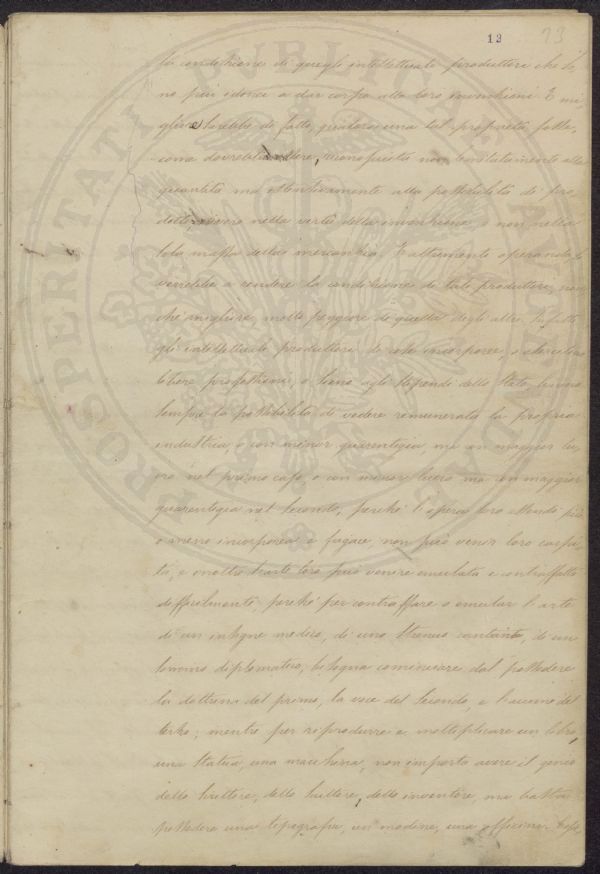 13 13
PROSPERITATI PUBLICAE AUGENDAE
la condizione di quegli intellettuali produttori che so-
no più idonei a dar corpo alle loro invenzioni. E mi-
gliore sarebbe di fatto, qualora una tal proprietà fosse,
come dovrebbe essere, riconosciuta non limitatamente alla
quantità ma estensivamente alla possibilità di pro-
dotti, ovvero nella verità della invenzione, e non nella
sola massa della mercanzia. E altrimenti operando si
verrebbe a rendere la condizione di tale produttore, non
che migliore, molto peggiore di quella degli altri. Infatti
gli intellettuali produttori di cose incorporee, o esercitino
libere professioni, o sieno agli stipendi dello Stato, hanno
sempre la possibilità di vedere remunerata la propria
industria, o con minor guarentigia, ma con maggior lu-
cro nel primo caso, o con minor lucro ma con maggior
guarentigia nel secondo, perché l'opera loro essendo più
o meno incorporea e fugace, non può venir loro carpi-
ta, e inoltre l'arte loro può venire emulata e contraffatta
difficilmente; perché per contraffare o emular l'arte
di un insigne medico, di uno strenuo cantante, di un
sommo diplomatico, bisogna cominciare dal possedere
la dottrina del primo, la voce del secondo, e l'acume del
terzo; mentre per riprodurre e moltiplicare un libro,
una statua, una macchina, non importa avere il genio
dello scrittore, dello scultore, dello inventore, ma basta
possedere una tipografia, un modine, una officina.